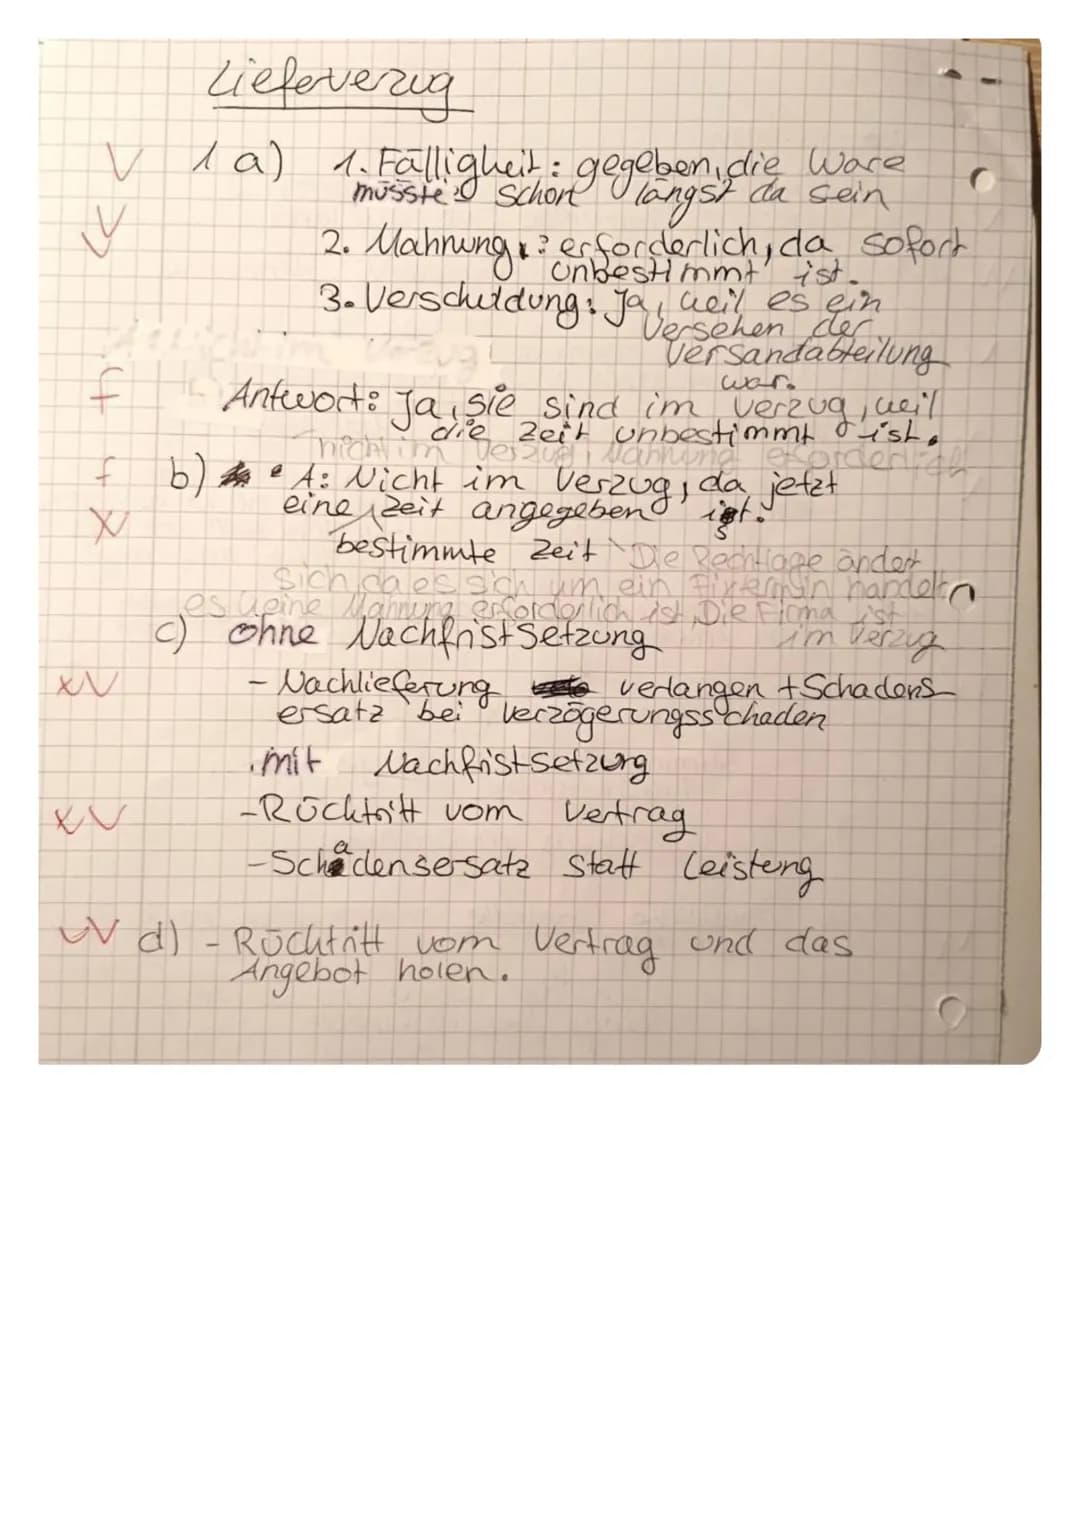 Lieferverzug
1 a) 1. Fälligkeit: gegeben, die Ware
müsste schon längst da sein
2. Mahnung: erforderlich, da sofort
unbestimmt ist.
3. Verschuldung: Ja, weil es ein
Versehen der
Versandabteilung
war.
f Antwort: Ja, sie sind im Verzug, weil
die Zeit unbestimmt ist.
nicht im Verzug, Mahnung erforderlich
f b) A: Nicht im Verzug, da jetzt
eine Zeit angegeben ist.
bestimmte Zeit Die Rechtlage ändert
sich, da es sich um ein Fixtermin handelt
es keine Mahnung erforderlich ist Die Firma ist
im Verzug
c) ohne Nachfristsetzung
- Nachlieferung verlangen + Schadens
ersatz bei Verzögerungsschaden
mit Nachfristsetzung
- Rücktritt vom Vertrag
- Schadensersatz statt Leistung
d) - Rücktritt vom Vertrag und das
Angebot holen.